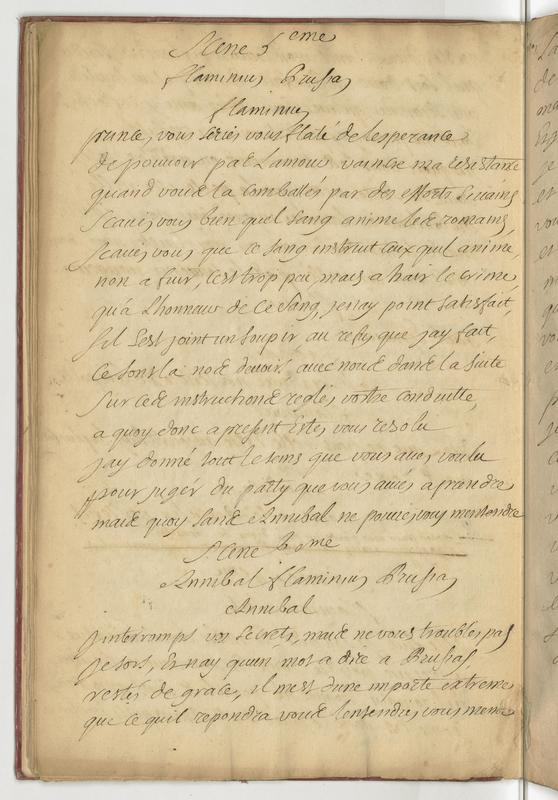 Scene 5 eme
flaminius Prusias
flaminius
prince, vous seriés vous flaté de lesperance
de pouvoir par L'amour vaincre ma resistance
quand vous la combattés par des efforts si vains
scavés vous bien quel sang anime les romains,
scavés vous que ce sang instruit ceux qu'il anime,
non a fuir, c'est trop peu, mais a hair le crime,
qu'a L'honneur de ce sang, je nay point satisfait,
s'il s'est joint un soupir, au refus que jay fait,
ce sont la nos devoirs, avec nous dans la suite
sur ces instructions reglés vostre conduitte,
a quoy donc a present Estes vous resolu
jay donné tout le tems que vous avés voulu
pour juger du party que vous aviés a prendre
mais quoy sans Annibal ne pouvés vous mentendre
Scene 6 eme
Annibal flaminius Prusias
Annibal
jinterromps vos secrets, mais ne vous troublés pas
je sors, Et nay quun mot a dire a Prusias,
restés de grace, il mest dune importe extreme
que ce quil repondra vous lentendiés vous meme